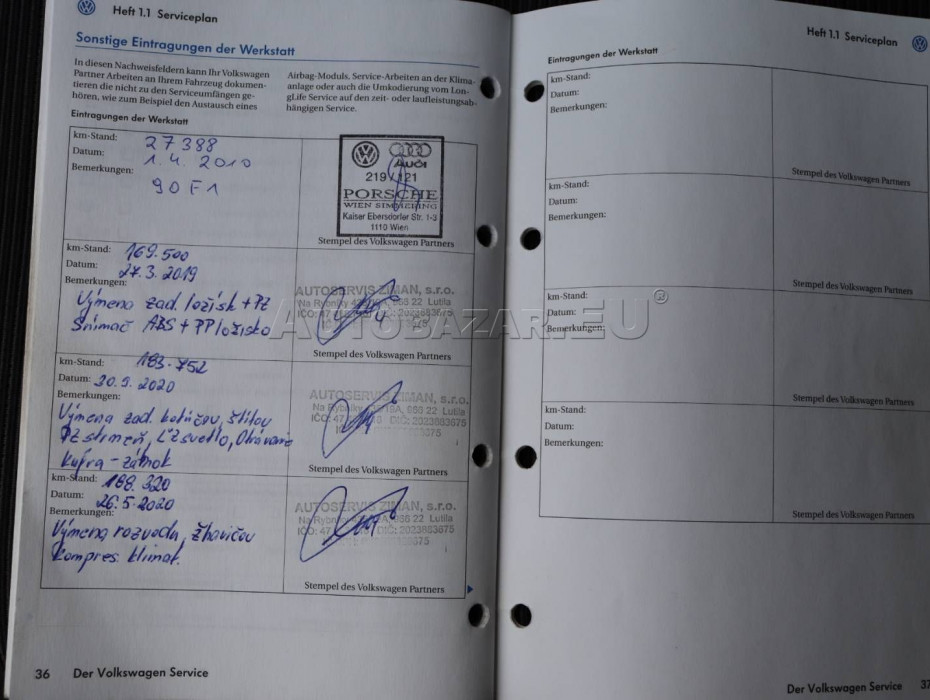 Heft 1.1 Serviceplan
Sonstige Eintragungen der Werkstatt
In diesen Nachweisfeldern kann Ihr Volkswagen
Partner Arbeiten an Ihrem Fahrzeug dokumen-
tieren die nicht zu den Serviceumfängen ge-
hören, wie zum Beispiel den Austausch eines
Airbag-Moduls, Service-Arbeiten an der Klima-
anlage oder auch die Umkodierung vom Lon-
gLife Service auf den zeit- oder laufleistungsab-
hängigen Service.
Eintragungen der Werkstatt
km-Stand: 27388
Datum: 1. 4. 2010
Bemerkungen:
90 F1
AUDI
219/121
PORSCHE
WIEN SIMMERING
Kaiser Ebersdorfer Str. 1-3
1110 Wien
Stempel des Volkswagen Partners
km-Stand: 169.500
Datum: 27.3.2019
Bemerkungen:
Výmena zad. ložísk + PZ
Snímač ABS + PP ložisko
AUTOSERVIS ZIMAN, s.r.o.
966 22 Lutila
Stempel des Volkswagen Partners
km-Stand: 183.752
Datum: 2020
Bemerkungen:
Výmena zad. kotúčov, štítov
PZ strmeň, ĽZ svetlo,
kufra - zámok
AUTOSERVIS ZIMAN, s.r.o.
966 22 Lutila
Stempel des Volkswagen Partners
km-Stand: 188.320
Datum: 26.5.2020
Bemerkungen:
Výmena rozvodu, žhavičov
kompres. klimat.
AUTOSERVIS ZIMAN, s.r.o.
966 22 Lutila
Stempel des Volkswagen Partners
36 Der Volkswagen Service
Heft 1.1 Serviceplan
Eintragungen der Werkstatt
km-Stand:
Datum:
Bemerkungen:
Stempel des Volkswagen Partners
km-Stand:
Datum:
Bemerkungen:
Stempel des Volkswagen Partners
km-Stand:
Datum:
Bemerkungen:
Stempel des Volkswagen Partners
km-Stand:
Datum:
Bemerkungen:
Stempel des Volkswagen Partners
Der Volkswagen Service 37
AUTOBAZAR.EU®